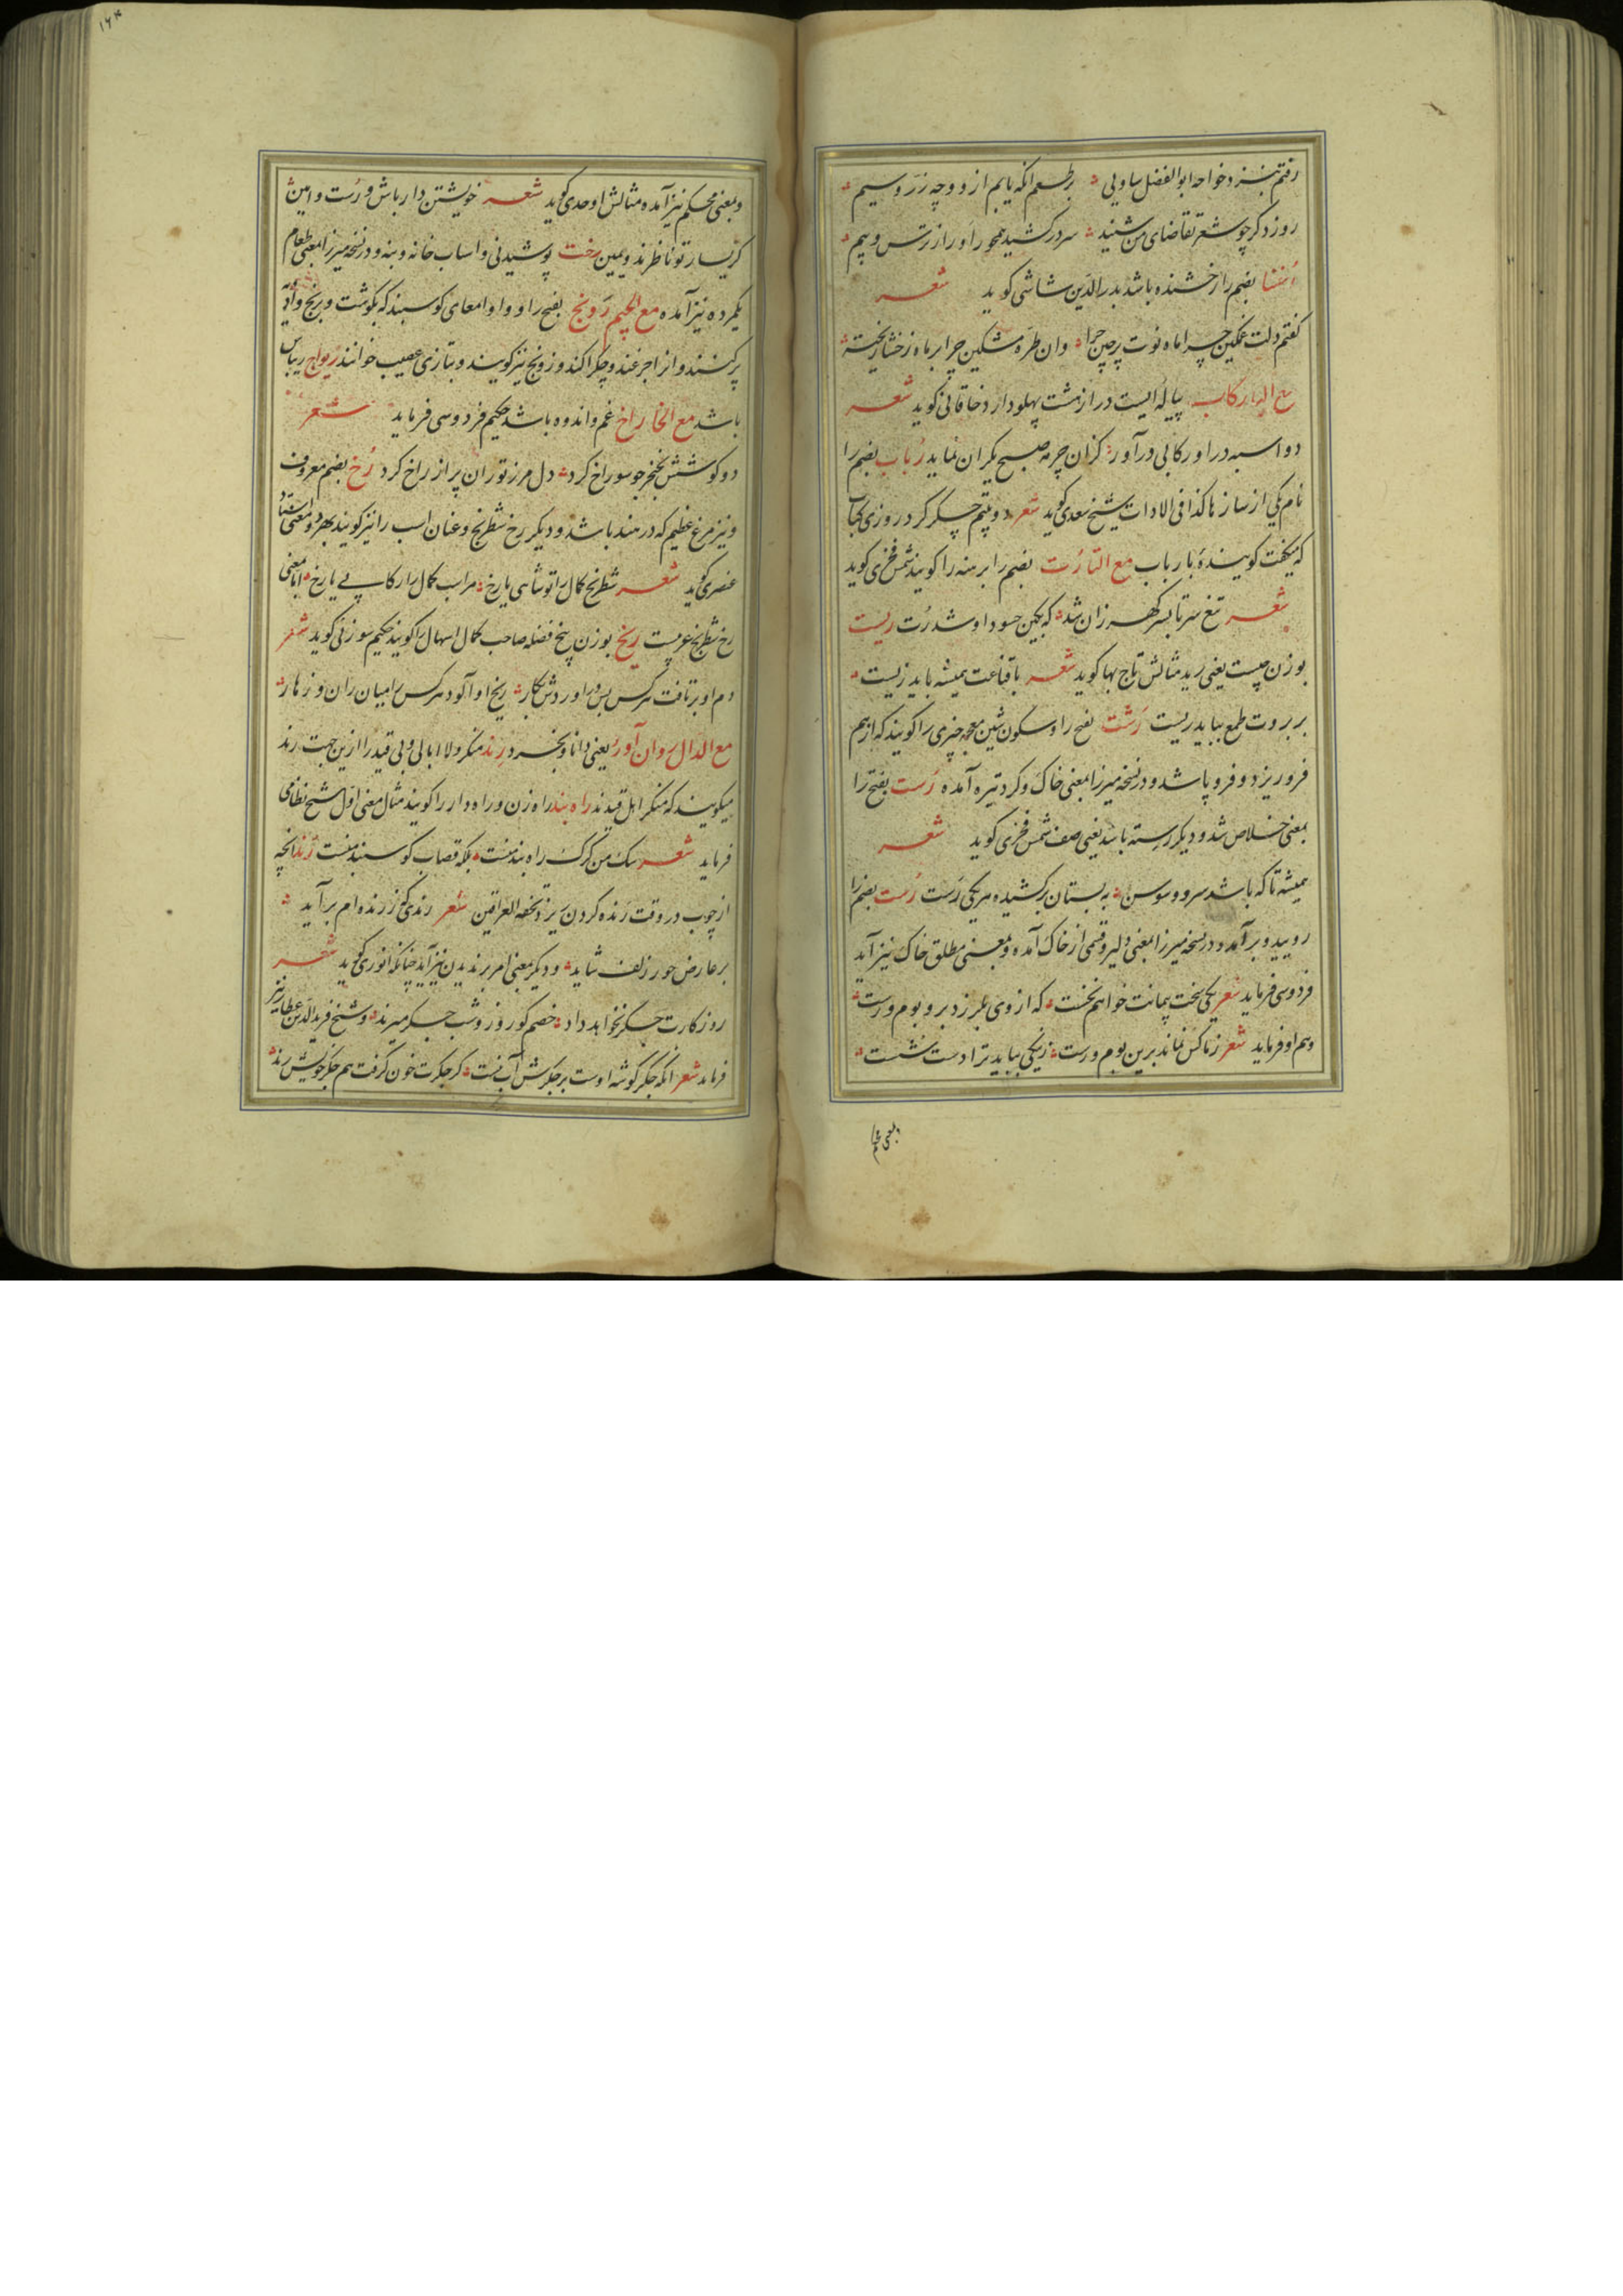 رفتم بنزد خواجه ابوالفضل ساوجی برطمع انکه یابم از و وجه زرّ و سیم
روز دکر چو شعر تقاضای من شنید سر در کشید همچو را و راز ترس و بیم
رُخشا بضم را رخشنده باشد بدرالدین شاشی کوید شعر
کفتم دلت غمکین چرا ماه نوت پرچین چرا وان طرّه مشکین چرا بر ماه رخشا ریخته
مع البا رکاب پیاله‌ایست دراز هشت پهلو دارد خاقانی کوید شعر
دو اسبه درا و رکابی درآور کزان چرمه صبح یکران نماید رُباب بضم را
نام یکی از سازها کذا فی الادات شیخ سعدی کوید شعر دو بیتم جکر کرد روزی کباب
که میکفت کوینده با رباب مع التا رُت بضم را برهنه را کویند شمس فخری کوید
شعر تیغ سر تا بسر کهر زان شد که بکین حسود او شد رُت ریست
بوزن چیست یعنی رید مثالش تاج بها کوید شعر با قناعت همیشه باید زیست
بر بروت طمع بباید ریست رَشت بفتح را و سکون شین معجمه چیزی را کویند که از هم
فرو ریزد و فرو پاشد و در نسخه میرزا بمعنی خاک و کرد تیره آمده رَست بفتح را
بمعنی خلاص شد و دیکر رسته باشد یعنی صف شمس فخری کوید شعر
همیشه تا که باشد سرو و سوسن به بستان برکشیده هر یکی رَست رُست بضم را
رویید و برآمد و در نسخه میرزا بمعنی دلیر و قسمی از خاک آمده و بمعنی مطلق خاک نیز آید
فردوسی فرماید شعر یکی سخت پیمانت خواهم نخست که از وی بلرزد بر و بوم و رست
و هم او فرماید شعر نماکس نماند برین بوم و رست زنیکی بباید ترا دست شست
وبمعنی محکم
۱۶۴
وبمعنی محکم نیز آمده مثالش اوحدی کوید شعر خویشتن دار باش و رُست و امین
کز یسار تو ناظرند و یمین رخت پوشیدنی و اسباب خانه و بنه و در نسخه میرزا بمعنی طعام
یکمرده نیز آمده مع الجیم رَونج بفتح را و واو امعای کوسبند که بکوشت و برنج و
پر کنند و انرا جرغند و چکراکند و زونج نیز کویند و بتازی عصیب خوانند ریواج ریباس
باشد مع الخا راخ غم و اندوه باشد حکیم فردوسی فرماید شعر
دو کوشش بخنجر چو سوراخ کرد دل مرز توران پر از راخ کرد رُخ بضم معروف
و نیز مرغ عظیم که در هند باشد و دیکر رخ شطرنج و عنان اسب را نیز کویند بهر دو معنی استاد
عنصری کوید شعر شطرنج کمال را تو شاهی یا رخ مر اسب کمال را رکابی یا رخ اما بمعنی
رخ شطرنج عربیست ریخ بوزن بیخ فضله صاحب کمال اسهال را کویند حکیم سوزنی کوید شعر
دم او برتافت هرکس بس و را و ردش بکار ریخ او آلود هرکس را میان ران و زهار
مع الدال روان آورُ یعنی دانا و بخرد رِند منکر و لا ابالی و بی قید را از ین جهت رند
میکویند که منکر اهل قیدند راه بند راه زن و راه دار را کویند مثال معنی اول شیخ نظامی
فرماید شعر سک من کرک راه بند منست بلکه قصاب کوسبند منست رَند انچه
از چوب در وقت رنده کردن بریزد تحفه العراقین شعر رندی کز رنده‌ام برآید
بر عارض حور زلف شاید و دیکر بمعنی امر برندیدن نیز آید چنانکه انوری کوید شعر
روزکارت جکر نخواهد داد خصم کو روز و شب جکر میرند و شیخ فریدالدین عطار نیز
فرماید شعر انکه جکر کوشه اوست بر جکرش آب نیست کر جکرت خون کرفت هم جکر خویش رند